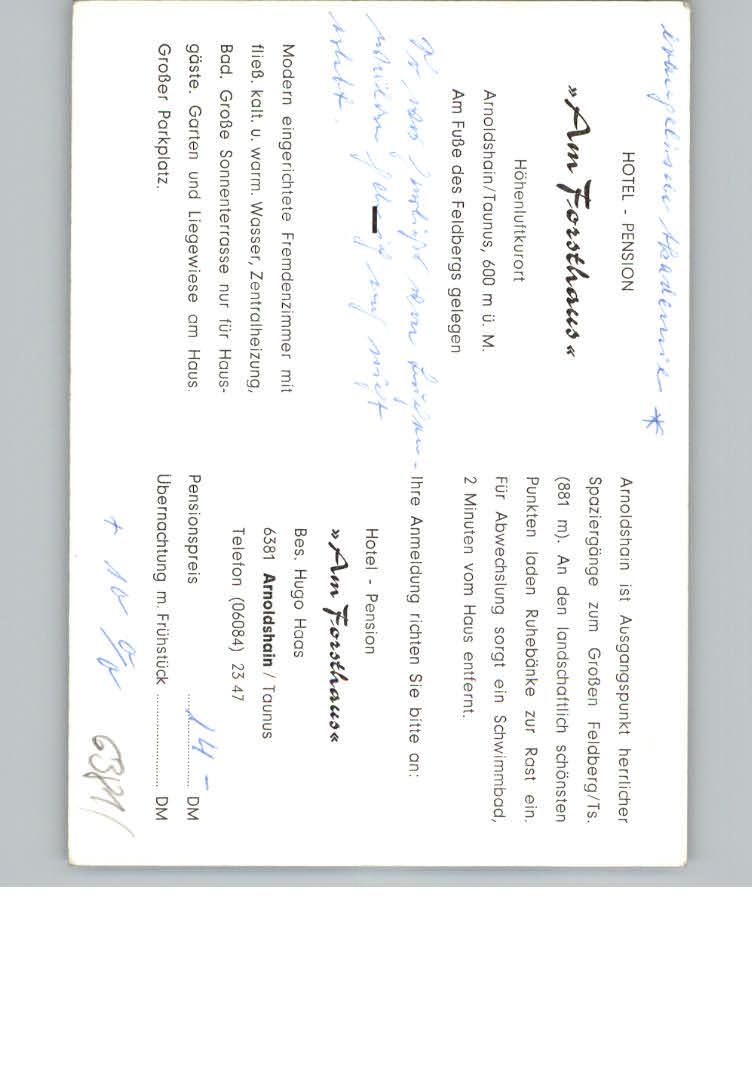 evangelische Akademie *
HOTEL - PENSION
»Am Forsthaus«
Höhenluftkurort
Arnoldshain/Taunus, 600 m ü. M.
Am Fuße des Feldbergs gelegen
und nicht
erlebt.
Modern eingerichtete Fremdenzimmer mit
fließ. kalt. u. warm. Wasser, Zentralheizung,
Bad. Große Sonnenterrasse nur für Haus-
gäste. Garten und Liegewiese am Haus.
Großer Parkplatz.
Arnoldshain ist Ausgangspunkt herrlicher
Spaziergänge zum Großen Feldberg/Ts.
(881 m). An den landschaftlich schönsten
Punkten laden Ruhebänke zur Rast ein.
Für Abwechslung sorgt ein Schwimmbad,
2 Minuten vom Haus entfernt.
Ihre Anmeldung richten Sie bitte an:
Hotel - Pension
»Am Forsthaus«
Bes. Hugo Haas
6381 Arnoldshain / Taunus
Telefon (06084) 23 47
Pensionspreis 14 - DM
Übernachtung m. Frühstück ............ DM
+ 10 %